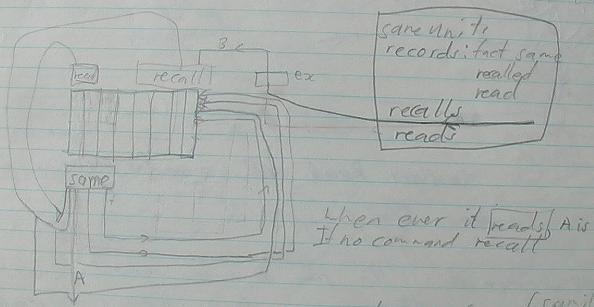 same unit,
records: fact same
recalled
read
recalls
reads
B
ex
recall
read
same
A
When ever it reads, A is
If no command recall